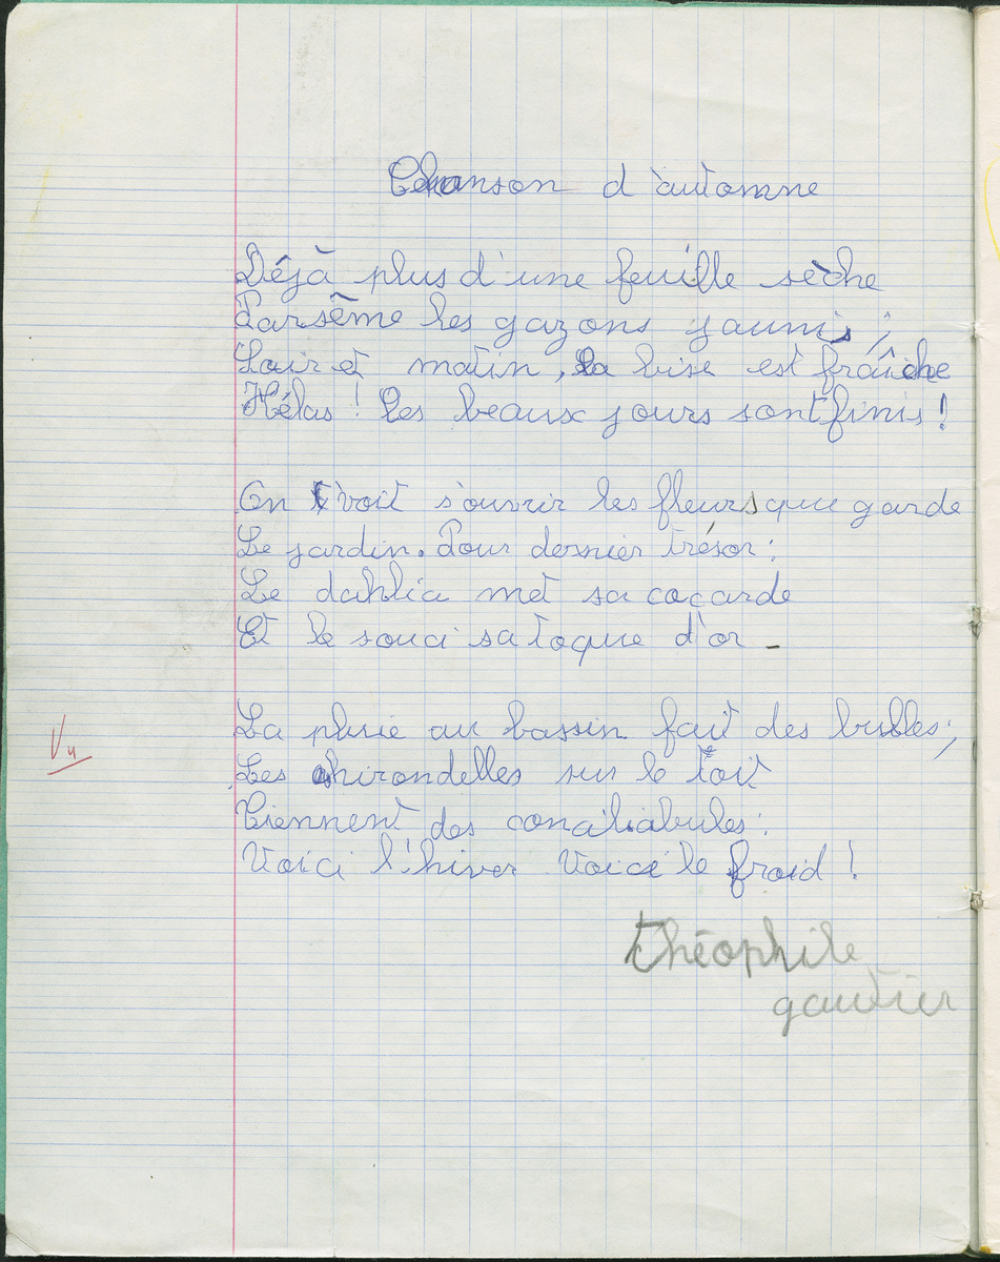 Chanson d'automne
Déjà plus d'une feuille sèche
Parsème les gazons jaunis ;
Soir et matin, la bise est fraîche
Hélas ! les beaux jours sont finis !
On voit s'ouvrir les fleurs que garde
Le jardin. Pour dernier trésor :
Le dahlia met sa cocarde
Et le souci sa toque d'or -
La pluie au bassin fait des bulles ;
Vu
Les hirondelles sur le toit
Tiennent des conciliabules :
Voici l'hiver Voici le froid !
théophile
gautier